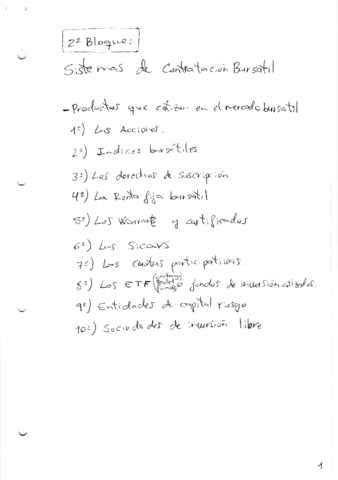 2º Bloque:
Sistemas de Contratación Bursátil
- Productos que cotizan en el mercado bursátil
1º) Las Acciones.
2º) Indices bursátiles.
3º) Los derechos de suscripción.
4º) La Renta fija bursátil
5º) Los Warrants y certificados
6º) Las Sicavs
7º) Las cuotas participativas.
8º) Los ETF fondos de inversión cotizados.
9º) Entidades de capital riesgo
10º) Sociedades de inversión libre
1